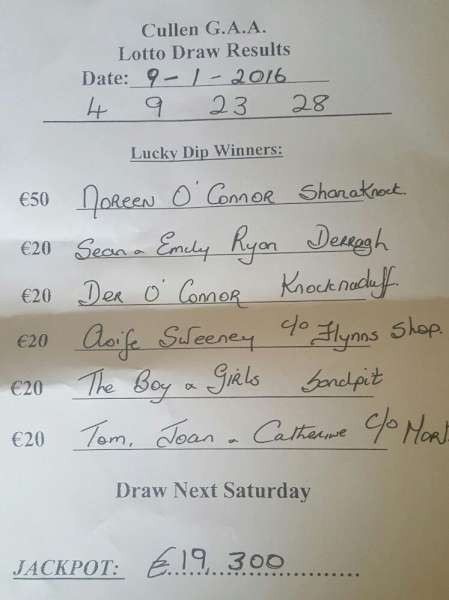 Cullen G.A.A.
Lotto Draw Results
Date: 9-1-2016
4 9 23 28
Lucky Dip Winners:
€50 Noreen O'Connor Shanaknock.
€20 Sean & Emily Ryan Derragh
€20 Der O'Connor Knocknaduff.
€20 Aoife Sweeney c/o Flynns Shop.
€20 The Boy & Girls Sandpit
€20 Tom, Joan & Catherine c/o
Draw Next Saturday
JACKPOT: €19,300